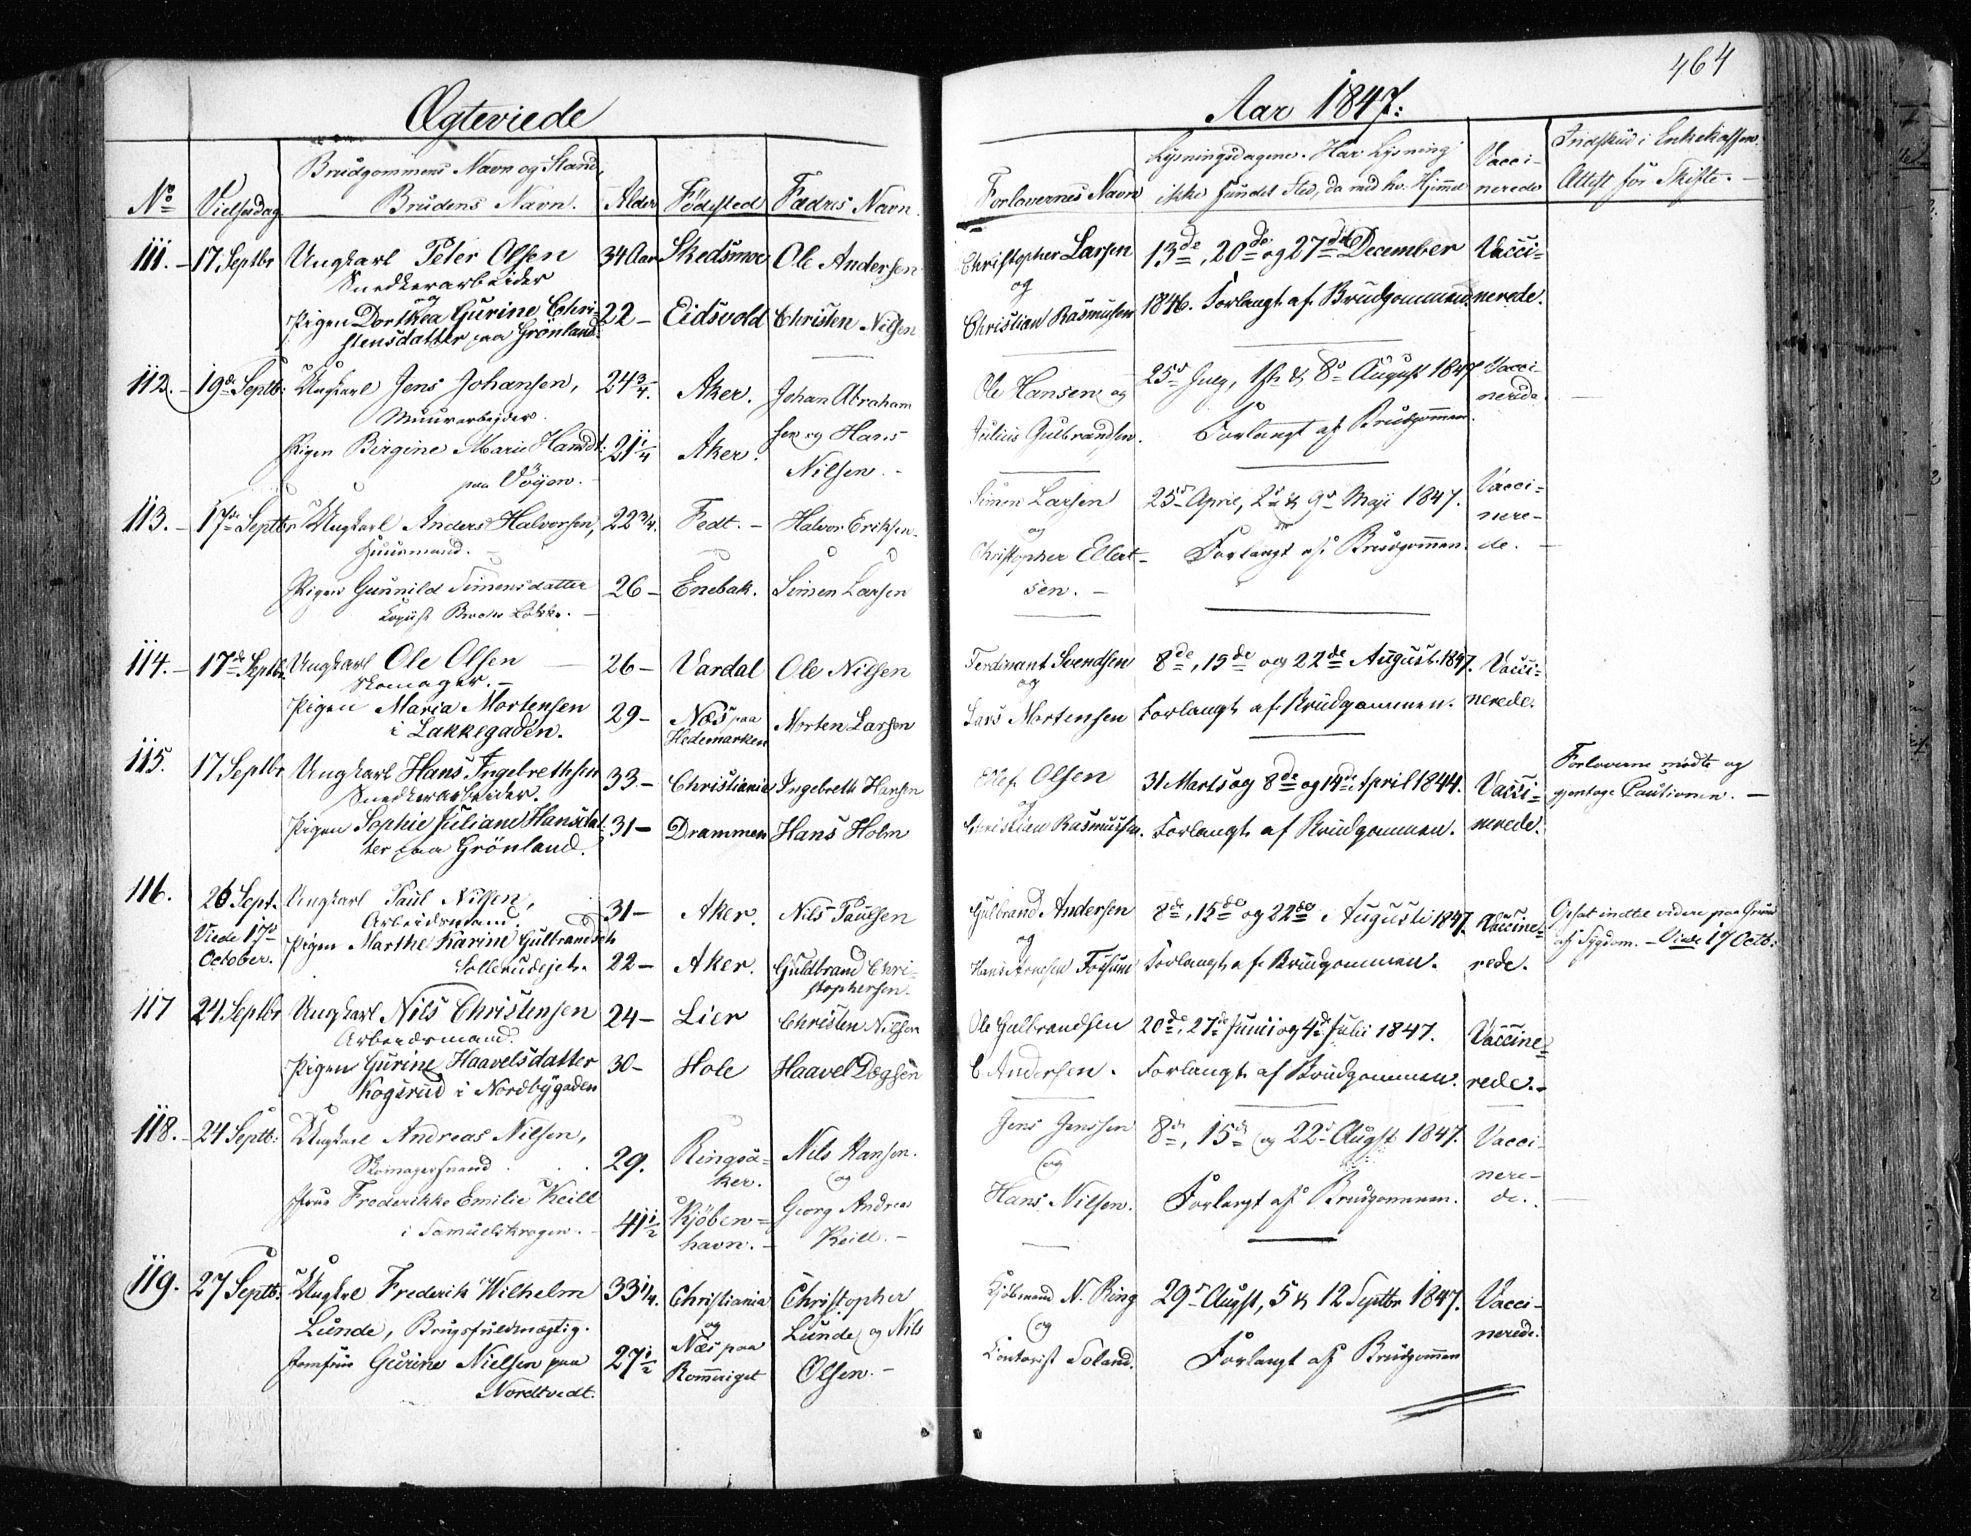 464
Ægteviede
Aar 1847.
No
Vielsesdag
Brudgommens Navn og Stand,
Brudens Navn.
Alder
Födested
Fædres Navn.
Forlovernes Navn
Lysningsdagene. Har Lysning
ikke fundet Sted, da med hv. Hjemmel
Vacci-
nerede
Indskud i Enkekassen.
Attest för Skifte. -
111. - 17 Septbr Ungkarl Peter Olsen 34 Aar Skedsmoe Ole Andersen
Snedkerarbeider
og
Pigen Dorthea Gurine Chri- 22 - Eidsvold Christen Nilsen
stensdatter paa Grönland.
Christopher Larsen 13de, 20de og 27de December Vacci-
og
Christian Rasmussen 1846. Forlangt af Brudgommen. nerede.
112. - 19de Septb: Ungkarl Jens Johansen, 24 3/4. Aker. Johan Abraham
Muurarbejder.
sen og Hans
Pigen Birgine Marie Hansdt: 21 1/4 Aker.
paa Vöyen. - Nilsen. -
Ole Hansen og 25de July, 1ste & 8de August 1847 Vacci-
nerede.
Julius Gulbrandsen. Forlangt af Brudgommen.
113. - 17de Septbr Ungkarl Anders Halvorsen, 22 3/4. Fedt. - Halvor Eriksen.
Huusmand. -
Pigen Gunnild Simensdatter 26 - Enebak. Simen Larsen
Løkke. -
Simen Larsen 25de April, 2de & 9de Maji 1847. Vacci-
og
nere-
Christopher Ellert- Forlangt af Brudgommen. de. -
sen. -
114. - 17de Septbr. Ungkarl Ole Olsen 26 - Vardal Ole Nilsen
Skomager. -
Pigen Maria Mortensen 29 - Næs paa Morten Larsen
i Lakkegaden. Hedemarken
Ferdinant Svendsen 8de, 15de og 22de August. 1847. Vacci-
og
Lars Mortensen Forlangt af Brudgommen. nerede.
115. 17 Septbr Ungkarl Hans Ingebrethsen 33 - Christiania Ingebreth Hansen
Snedkerarbeider.
Pigen Sophie Juliane Hansdat- 31 - Drammen Hans Holm
ter paa Grönland.
Olsen 31 Marts og 8de og 14de April 1844. Vacci-
og
Christian Rasmussen. Forlangt af Brudgommen. nerede.
Forloverne mødte og
gjentage Cautionen. -
116. 26 Sept. Ungkarl Paul Nilsen, 31 - Aker. Nils Paulsen
Arbeidsmand.
Viede 17de Pigen Marthe Karine Gulbrandsdt
October. Sollerudejet. 22 - Aker. Guldbrand Chri-
stophersen.
Gulbrand Andersen 8de, 15de og 22de Augusti 1847. Vaccine-
og
Hans Forlangt af Brudgommen. rede.
Opsat indtil videre paa Grund
af Sygdom. - Viede 17 Octb:
117 24 Septbr Ungkarl Nils Christensen 24 - Lier Christen Nilsen
Arbeidsmand.
Pigen Gurine Haavelsdatter 30 - Hole Haavel Dogsen
Kogsrud i Nordbygaden
Ole Gulbrandsen 20de, 27de Junii og 4de Julii 1847. Vaccine-
C. Andersen. Forlangt af Brudgommen. rede. -
118. - 24 Septb: Ungkarl Andreas Nilsen, 29. Ringsa- Nils Hansen.
Skomagersvend. ker. og
Frue Frederikke Emilie Keill 41 1/2 Kjöben- Georg Andrea
i Samuelskrogen. - havn. - Keill. -
Jens Jenssen 8de, 15de og 22de Augst 1847. Vacci-
og
nere-
Hans Nilsen. Forlangt af Brudgommen. de. -
119. 27 Septb: Ungkrl Frederik Wilhelm 33 1/4. Christiania Christopher
Lunde, Brugsfuldmægtig. og Lunde og Nils
Jomfrue Gurine Nielsen paa 27 1/2 Næs paa Olsen. -
Nordtvedt. Romeriget
Kjöbmand N. Ring 29de Augst, 5 & 12 Septbr 1847. Vacci-
og
nerede.
Contorist Soland. Forlangt af Brudgommen